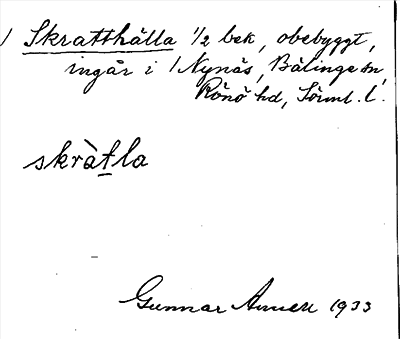 / Skratthälla 1/2 bek, obebyggt,
ingår i /Nynäs, Bälinge sn,
Rönö hd, Sörml. l.
skràtla
Gunnar 1933